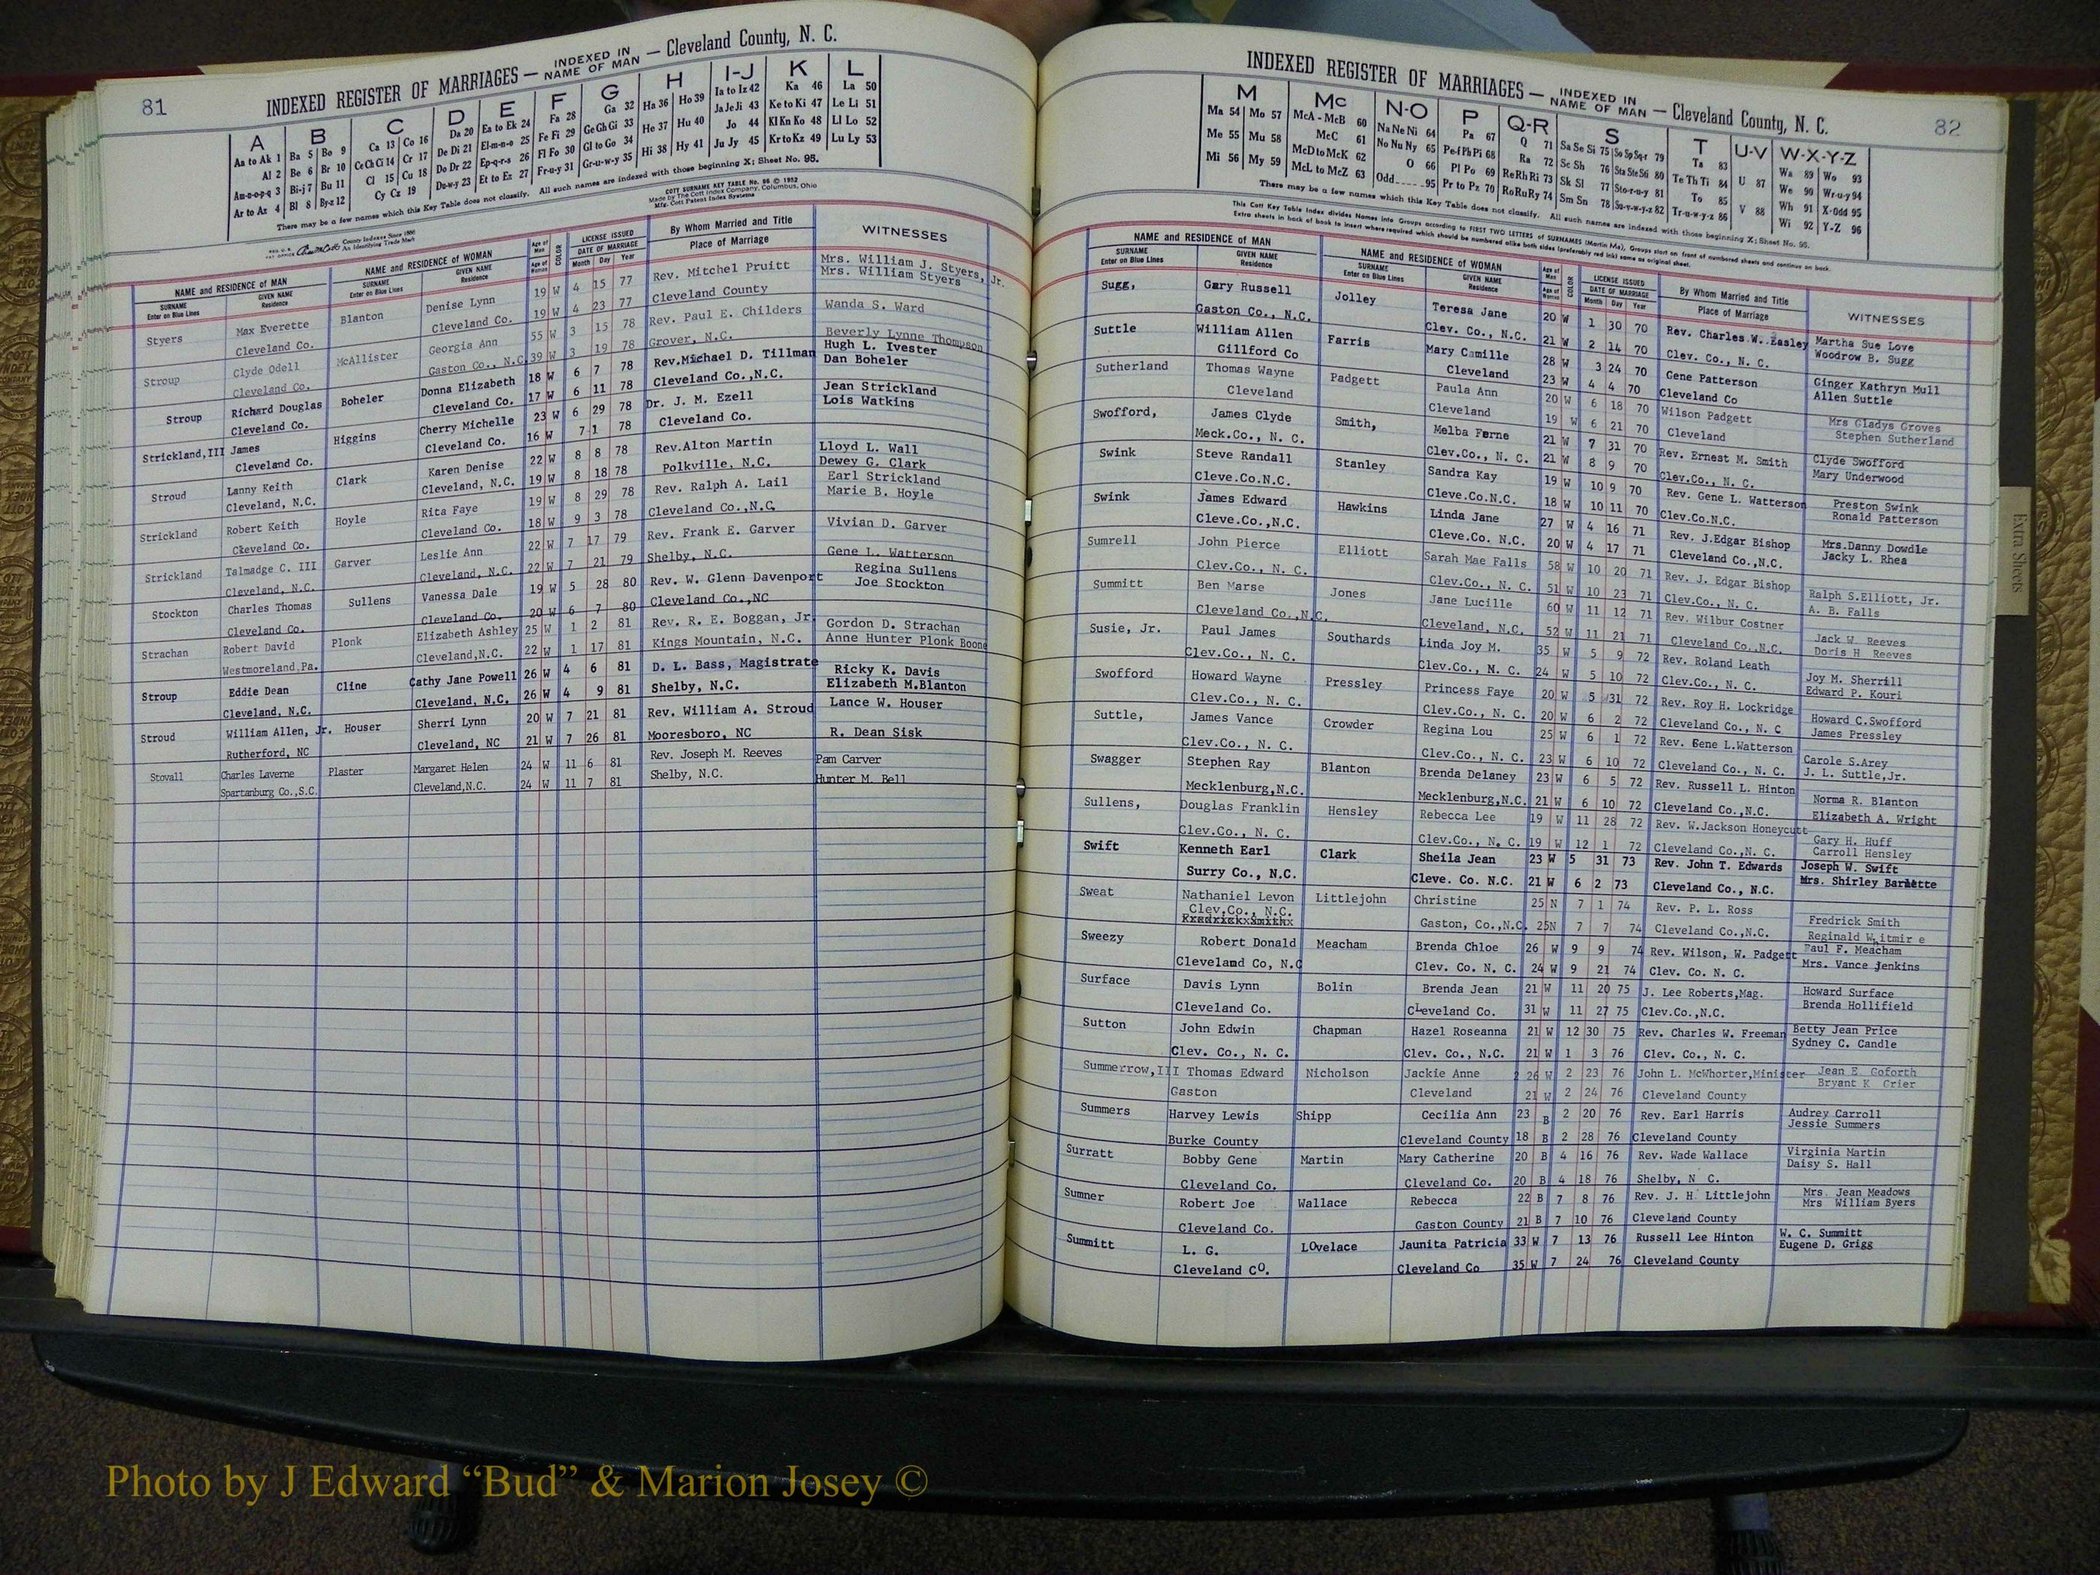 81
INDEXED REGISTER OF MARRIAGES — INDEXED IN NAME OF MAN — Cleveland County, N. C.
A B C D E F G H I-J K L
Aa to Ak 1 Ba 5 Bo 9 Ca 13 Co 16 Da 20 Ea to Ek 24 Fa 28 Ga 32 Ha 36 Ho 39 Ia to Iz 42 Ka 46 La 50
Al 2 Be 6 Br 10 Ce Ch Ci 14 Cr 17 De Di 21 El-m-n-o 25 Fe Fi 29 Ge Gh Gi 33 He 37 Hu 40 Ja Je Ji 43 Ke to Ki 47 Le Li 51
Am-n-o-p-q 3 Bi-j 7 Bu 11 Cl 15 Cu 18 Do Dr 22 Ep-q-r-s 26 Fl Fo 30 Gl to Go 34 Hi 38 Hy 41 Jo 44 Kl Kn Ko 48 Ll Lo 52
Ar to Az 4 Bl 8 By-z 12 Cy Cz 19 Du-w-y 23 Et to Ez 27 Fr-u-y 31 Gr-u-w-y 35 Ju Jy 45 Kr to Kz 49 Lu Ly 53
There may be a few names which this Key Table does not classify. All such names are indexed with those beginning X; Sheet No. 95.
COTT SURNAME KEY TABLE No. 96 © 1952
Made by The Cott Index Company, Columbus, Ohio
Mfg. Cott Patent Index Systems
County Indexes Since 1888
An Identifying Trade Mark
NAME and RESIDENCE OF MAN NAME and RESIDENCE OF WOMAN Age of Man Age of Woman COLOR LICENSE ISSUED DATE OF MARRIAGE By Whom Married and Title WITNESSES
SURNAME Enter on Blue Lines GIVEN NAME Residence SURNAME Enter on Blue Lines GIVEN NAME Residence Month Day Year Place of Marriage
Styers Max Everette Blanton Denise Lynn 19 W 4 15 77 Rev. Mitchel Pruitt Mrs. William J. Styers, Jr.
Cleveland Co. Cleveland Co. 19 W 4 23 77 Cleveland County Mrs. William Styers
Stroup Clyde Odell McAllister Georgia Ann 55 W 3 15 78 Rev. Paul E. Childers Wanda S. Ward
Cleveland Co. Gaston Co., N.C. 39 W 3 19 78 Grover, N.C. Beverly Lynne Thompson
Stroup Richard Douglas Boheler Donna Elizabeth 18 W 6 7 78 Rev.Michael D. Tillman Hugh L. Ivester
Cleveland Co. Cleveland Co. 17 W 6 11 78 Cleveland Co.,N.C. Dan Boheler
Strickland,III James Higgins Cherry Michelle 23 W 6 29 78 Dr. J. M. Ezell Jean Strickland
Cleveland Co. Cleveland Co. 16 W 7 1 78 Cleveland Co. Lois Watkins
Stroud Lanny Keith Clark Karen Denise 22 W 8 8 78 Rev.Alton Martin Lloyd L. Wall
Cleveland, N.C. Cleveland, N.C. 19 W 8 18 78 Polkville, N.C. Dewey G. Clark
Strickland Robert Keith Hoyle Rita Faye 19 W 8 29 78 Rev. Ralph A. Lail Earl Strickland
Ckeveland Co. Cleveland Co. 18 W 9 3 78 Cleveland Co.,N.C. Marie B. Hoyle
Strickland Talmadge C. III Garver Leslie Ann 22 W 7 17 79 Rev. Frank E. Garver Vivian D. Garver
Cleveland, N.C. Cleveland, N.C. 22 W 7 21 79 Shelby, N.C. Gene L. Watterson
Stockton Charles Thomas Sullens Vanessa Dale 19 W 5 28 80 Rev. W. Glenn Davenport Regina Sullens
Cleveland Co. Cleveland Co. 20 W 6 7 80 Cleveland Co.,NC Joe Stockton
Strachan Robert David Plonk Elizabeth Ashley 25 W 1 2 81 Rev. R. E. Boggan, Jr. Gordon D. Strachan
Westmoreland,Pa. Cleveland,N.C. 22 W 1 17 81 Kings Mountain, N.C. Anne Hunter Plonk Boone
Stroup Eddie Dean Cline Cathy Jane Powell 26 W 4 6 81 D. L. Bass, Magistrate Ricky K. Davis
Cleveland, N.C. Cleveland, N.C. 26 W 4 9 81 Shelby, N.C. Elizabeth M.Blanton
Stroud William Allen, Jr. Houser Sherri Lynn 20 W 7 21 81 Rev. William A. Stroud Lance W. Houser
Rutherford, NC Cleveland, NC 21 W 7 26 81 Mooresboro, NC R. Dean Sisk
Stovall Charles Laverne Plaster Margaret Helen 24 W 11 6 81 Rev. Joseph M. Reeves Pam Carver
Spartanburg Co.,S.C. Cleveland,N.C. 24 W 11 7 81 Shelby, N.C. Hunter M. Bell
82
INDEXED REGISTER OF MARRIAGES — INDEXED IN NAME OF MAN — Cleveland County, N. C.
M Mc N-O P Q-R S T U-V W-X-Y-Z
Ma 54 Mo 57 McA - McB 60 Na Ne Ni 64 Pa 67 Q 71 Sa Se Si 75 So Sp Sq-r 79 Ta 83 U 87 Wa 89 Wo 93
Me 55 Mu 58 McC 61 No Nu Ny 65 Pe-f Ph Pi 68 Ra 72 Sc Sh 76 Sta Ste Sti 80 Te Th Ti 84 V 88 We 90 Wr-u-y 94
Mi 56 My 59 McD to McK 62 O 66 Pl Po 69 Re Rh Ri 73 Sk Sl 77 Sto-r-u-y 81 To 85 Wh 91 X-Odd 95
McL to McZ 63 Odd 95 Pr to Pz 70 Ro Ru Ry 74 Sm Sn 78 Su-v-w-y-z 82 Tr-u-w-y-z 86 Wi 92 Y-Z 96
There may be a few names which this Key Table does not classify. All such names are indexed with those beginning X; Sheet No. 95.
This Cott Key Table Index divides Names into Groups according to FIRST TWO LETTERS of SURNAMES (Martin Ma), Groups start on front of numbered sheets and continue on back.
Extra sheets in back of book to insert where required which should be numbered alike both sides (preferably red ink) same as original sheet.
NAME and RESIDENCE OF MAN NAME and RESIDENCE OF WOMAN Age of Man Age of Woman COLOR LICENSE ISSUED DATE OF MARRIAGE By Whom Married and Title WITNESSES
SURNAME Enter on Blue Lines GIVEN NAME Residence SURNAME Enter on Blue Lines GIVEN NAME Residence Month Day Year Place of Marriage
Sugg, Gary Russell Jolley Teresa Jane 20 W 1 30 70 Rev. Charles W. Easley Martha Sue Love
Gaston Co., N.C. Clev. Co., N.C. 21 W 2 14 70 Clev. Co., N. C. Woodrow B. Sugg
Suttle William Allen Farris Mary Camille 28 W 3 24 70 Gene Patterson Ginger Kathryn Mull
Gillford Co Cleveland 23 W 4 4 70 Cleveland Co Allen Suttle
Sutherland Thomas Wayne Padgett Paula Ann 20 W 6 18 70 Wilson Padgett Mrs Gladys Groves
Cleveland Cleveland 19 W 6 21 70 Cleveland Stephen Sutherland
Swofford, James Clyde Smith, Melba Ferne 21 W 7 31 70 Rev. Ernest M. Smith Clyde Swofford
Meck.Co., N. C. Clev.Co., N. C. 21 W 8 9 70 Clev.Co., N. C. Mary Underwood
Swink Steve Randall Stanley Sandra Kay 19 W 10 9 70 Rev. Gene L. Watterson Preston Swink
Cleve.Co.N.C. Cleve.Co.N.C. 18 W 10 11 70 Clev.Co.N.C. Ronald Patterson
Swink James Edward Hawkins Linda Jane 27 W 4 16 71 Rev. J.Edgar Bishop Mrs.Danny Dowdle
Cleve.Co.,N.C. Cleve.Co. N.C. 20 W 4 17 71 Cleveland Co.,N.C. Jacky L. Rhea
Sumrell John Pierce Elliott Sarah Mae Falls 58 W 10 20 71 Rev. J. Edgar Bishop Ralph S.Elliott, Jr.
Clev.Co., N. C. Clev.Co., N. C. 51 W 10 23 71 Clev.Co., N. C. A. B. Falls
Summitt Ben Marse Jones Jane Lucille 60 W 11 12 71 Rev. Wilbur Costner Jack W. Reeves
Cleveland Co.,N.C. Cleveland, N.C. 52 W 11 21 71 Cleveland Co.,N.C. Doris H Reeves
Susie, Jr. Paul James Southards Linda Joy M. 35 W 5 9 72 Rev. Roland Leath Joy M. Sherrill
Clev.Co., N. C. Clev.Co., N. C. 24 W 5 10 72 Clev.Co., N. C. Edward P. Kouri
Swofford Howard Wayne Pressley Princess Faye 20 W 5 31 72 Rev. Roy H. Lockridge Howard C.Swofford
Clev.Co., N. C. Clev.Co., N. C. 20 W 6 2 72 Cleveland Co., N. C James Pressley
Suttle, James Vance Crowder Regina Lou 25 W 6 1 72 Rev. Gene L.Watterson Carole S.Arey
Clev.Co., N. C. Clev.Co., N. C. 23 W 6 10 72 Cleveland Co., N. C. J. L. Suttle,Jr.
Swagger Stephen Ray Blanton Brenda Delaney 23 W 6 5 72 Rev. Russell L. Hinton Norma R. Blanton
Mecklenburg,N.C. Mecklenburg,N.C. 21 W 6 10 72 Cleveland Co.,N.C. Elizabeth A. Wright
Sullens, Douglas Franklin Hensley Rebecca Lee 19 W 11 28 72 Rev. W.Jackson Honeycutt Gary H. Huff
Clev.Co., N. C. Clev.Co., N. C. 19 W 12 1 72 Cleveland Co.,N. C. Carroll Hensley
Swift Kenneth Earl Clark Sheila Jean 23 W 5 31 73 Rev. John T. Edwards Joseph W. Swift
Surry Co., N.C. Cleve. Co. N.C. 21 W 6 2 73 Cleveland Co., N.C. Mrs. Shirley
Sweat Nathaniel Levon Littlejohn Christine 25 N 7 1 74 Rev. P. L. Ross Fredrick Smith
Clev.Co., N.C. Gaston, Co.,N.C. 25 N 7 7 74 Cleveland Co.,N.C. Reginald Witmir e
Sweezy Robert Donald Meacham Brenda Chloe 26 W 9 9 74 Rev. Wilson, W. Padgett Paul F. Meacham
Cleveland Co, N.C Clev. Co. N. C. 24 W 9 21 74 Clev. Co. N. C. Mrs. Vance Jenkins
Surface Davis Lynn Bolin Brenda Jean 21 W 11 20 75 J. Lee Roberts,Mag. Howard Surface
Cleveland Co. CLeveland Co. 31 W 11 27 75 Clev.Co.,N.C. Brenda Hollifield
Sutton John Edwin Chapman Hazel Roseanna 21 W 12 30 75 Rev. Charles W. Freeman Betty Jean Price
Clev. Co., N. C. Clev. Co., N.C. 21 W 1 3 76 Clev. Co., N. C. Sydney C. Candle
Summerrow,III Thomas Edward Nicholson Jackie Anne 26 W 2 23 76 John L. McWhorter,Minister Jean E. Goforth
Gaston Cleveland 21 W 2 24 76 Cleveland County Bryant K Grier
Summers Harvey Lewis Shipp Cecilia Ann 23 B 2 20 76 Rev. Earl Harris Audrey Carroll
Burke County Cleveland County 18 B 2 28 76 Cleveland County Jessie Summers
Surratt Bobby Gene Martin Mary Catherine 20 B 4 16 76 Rev. Wade Wallace Virginia Martin
Cleveland Co. Cleveland Co. 20 B 4 18 76 Shelby, N C. Daisy S. Hall
Sumner Robert Joe Wallace Rebecca 22 B 7 8 76 Rev. J. H. Littlejohn Mrs. Jean Meadows
Cleveland Co. Gaston County 21 B 7 10 76 Cleveland County Mrs William Byers
Summitt L. G. LOvelace Jaunita Patricia 33 W 7 13 76 Russell Lee Hinton W. C. Summitt
Cleveland CO. Cleveland Co 35 W 7 24 76 Cleveland County Eugene D. Grigg
Extra Sheets
Photo by J Edward “Bud” & Marion Josey ©